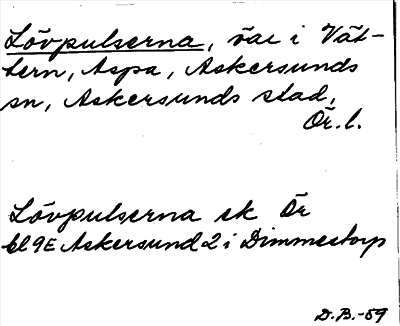 Lövpulserna, öar i Vät-
tern, Aspa, Askersunds
sn, Askersunds stad,
Ör. l.
Lövpulserna ek Ör
bl 9E Askersund 2 i Dimmestorp
D.B.-59